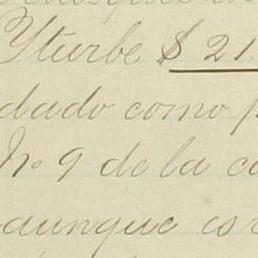 Yturbe $ 21
dado como p
No 9 de la ca
aunque es